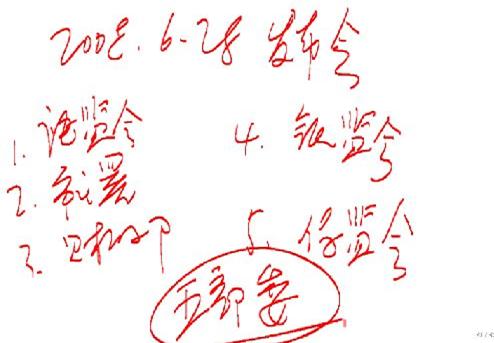 2008.6-28 发布会
1. 证监会
2. 审计署
3. 财政部
4. 银监会
5. 保监会
五部委